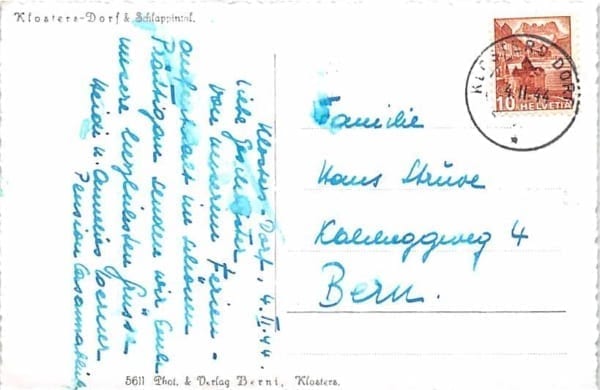 Klosters-Dorf & Schlappintal.
Klosters-Dorf, 4. II. 44.
Liebe
Von unserem Ferien-
aufenthalt im schönen
Prättigau senden wir Euch
unsere herzlichsten Grüsse
Heidi u. Annelis
Pension Casannablick
KLOSTERS-DORF
4.II.44
10 HELVETIA
Familie
Hans Struve
Kalcheggweg 4
Bern.
5611 Phot. & Verlag Berni, Klosters.